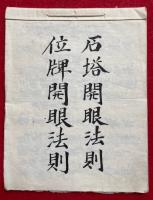 石塔開眼法則
位牌開眼法則